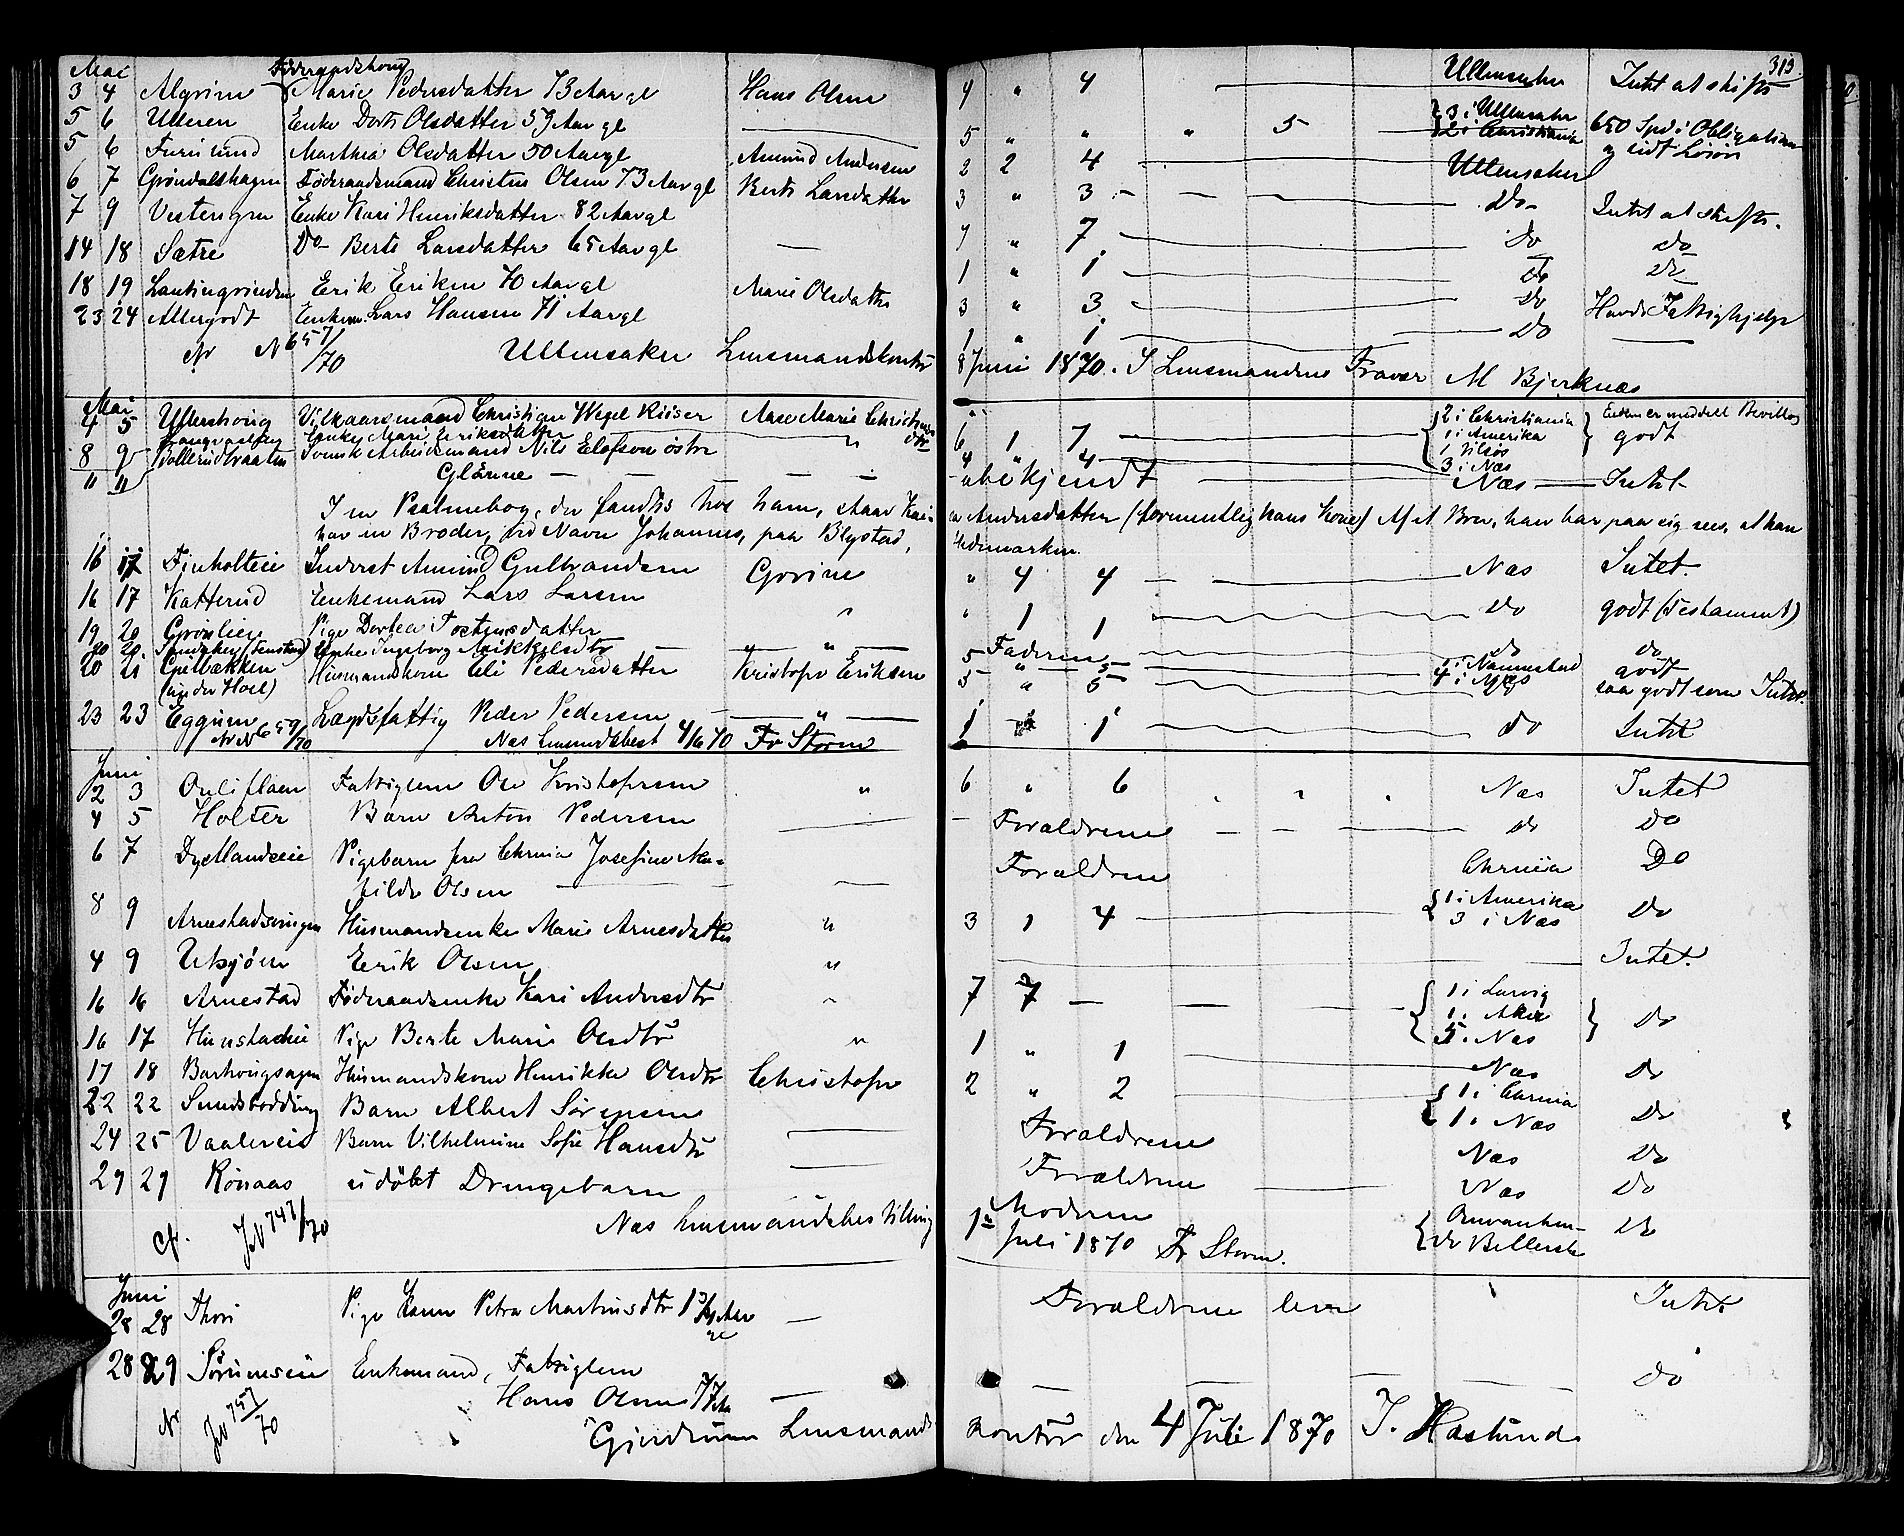 313
Mai
3 4 Algrim Føderaadskone Marie Pedersdatter 73 Aar gl Hans Olsen 4 " 4 Ullensaker Intet at skifte
5 6 Ulleren Enke Dorte Olsdatter 59 Aar gl 5 " " " 5 3 i Ullensaker 2 i Christiania 650 Spd i Obligationer og lidt Løsøre
5 6 Furulund Marthea Olsdatter 50 Aar gl Amund Andersen 2 2 4 Ullensaker
6 7 Grøndalshagen Føderaadsmand Christen Olsen 73 Aar gl Berte Larsdatter 3 " 3 Do Intet at skifte.
7 9 Vestengen Enke Kari Henriksdatter 82 Aar gl 7 " 7 do do
14 18 Sætre Do Berte Larsdatter 65 Aar gl 1 " 1 do do
18 19 Erik Eriksen 70 Aar gl Marie Olsdatter 3 " 3 Do Havde Fattighjelp
23 24 Allergodt Enkem. Lars Hansen 71 Aar gl 1 " 1 Do
N 657/70 Ullensaker Lensmandskontor 8 Juni 1870. I Lensmandens Fravær M Bjerknæs
Mai
4 5 Ullershoug Vilkaarsmand Christian Wegel Kiiser Anne Marie Christensdtr 6 1 7 2 i Christiania 1 i Amerika Enken er meddelt Bevilling
8 9 Enke Marie Eriksdatter " 4 " 4 3 i Næs godt
" " Bollerudbraaten Svensk Arbeidsmand Nils Elofson østre Glänne ubekjendt Næs Intet
I en Psalmebog, der fandtes hos ham, staar Karen Andersdatter (formentlig hans Kone) Af et Brev, han bar paa sig sees, at han
har en Broder, ved Navn Johannes, paa Blystad, Hedemarken.
16 17 Finholteie Inderst Amund Gulbrandsen Gorine " 4 4 Næs Intet.
16 17 Katterud Enkemand Lars Larsen " " 1 1 Do godt (Testament)
19 20 Grønlien Pige Dorthea Tostensdatter Faderen do do
20 20 Enke Ingeborg Mikkelsdtr " 5 " 5 1 i Nannestad 4 i Næs godt
20 21 Gulbækken (under Hoel) Huusmandskone Eli Pedersdatter Kristofer Eriksen 5 " 5 saa godt som Intet.
23 23 Eggum Lægdsfattig Peder Pedersen " 1 " 1 do Intet
N 659/70 Næs Lensmdsbest 4/6 70 Fr Storm
Juni
2 3 Fattiglem Ole Kristofersen " 6 " 6 Næs Intet
4 5 Holter Barn Anton Pedersen Forældrene do Do
6 7 Dystlandseie Pigebarn fra Chrnia Josefine Mathilde Olsen Forældrene Chrnia Do
8 9 Arnestadsvingen Huusmandsenke Marie Arnesdatter " 3 1 4 1 i Amerika 3 i Næs Do
4 9 Utsjøen Eerik Olsen " Intet.
16 16 Arnestad Føderaadsenke Kari Andersdtr " 7 " 7 1 i Larvig 1 i Aker 5 i Næs Do
16 17 Hunstadeie Pige Berte Marie Olsdtr " 1 " 1 Næs Do
17 18 Barhougsagen Huusmandskone Henrikke Olsdtr Christofer 2 " 2 1 i Chrnia 1 i Næs Do
22 22 Sundstødding Barn Albert Sørensen Forældrene Næs Do
24 25 Vaalereie Barn Vilhelmine Sofie Hansdtr Forældrene Næs Do
29 29 Rønaas udöbt Drengebarn Moderen Do
N 747/70 Næs Lensmandsbestilling 1ste Juli 1870 Fr Storm.
Juni
28 28 Thori Pige Karen Petra Martinsdtr 1 3/4 Aar gl Forældrene lever Intet
28 29 Sørumseie Enkemand, Fattiglem Hans Olsen 77 Aar do
N 757/70 Gjerdrum Lensmandskontor den 4 Juli 1870 J. Haslund